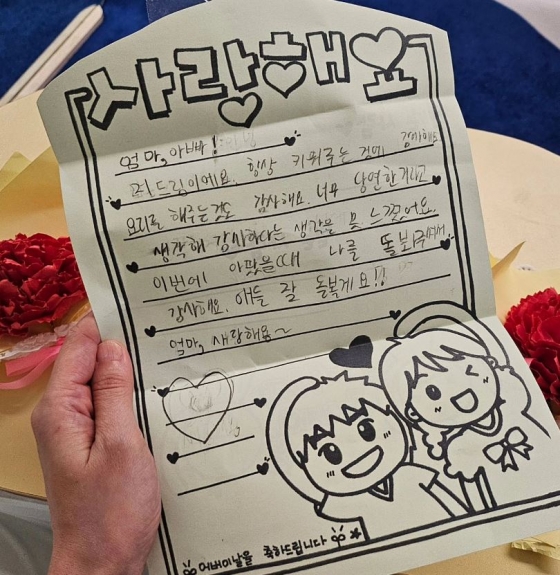 사랑해요
엄마, 아빠!
저 드림이에요. 항상 키워주는 것에 감사해요
요리를 해주는 것도 감사해요. 너무 당연한거라고
생각해 감사하다는 생각을 못 느꼈어요.
이번에 아팠을때 나를 돌봐주셔서
감사해요. 애들 잘 돌볼게요!!
엄마, 사랑해용~
어버이날을 축하드립니다